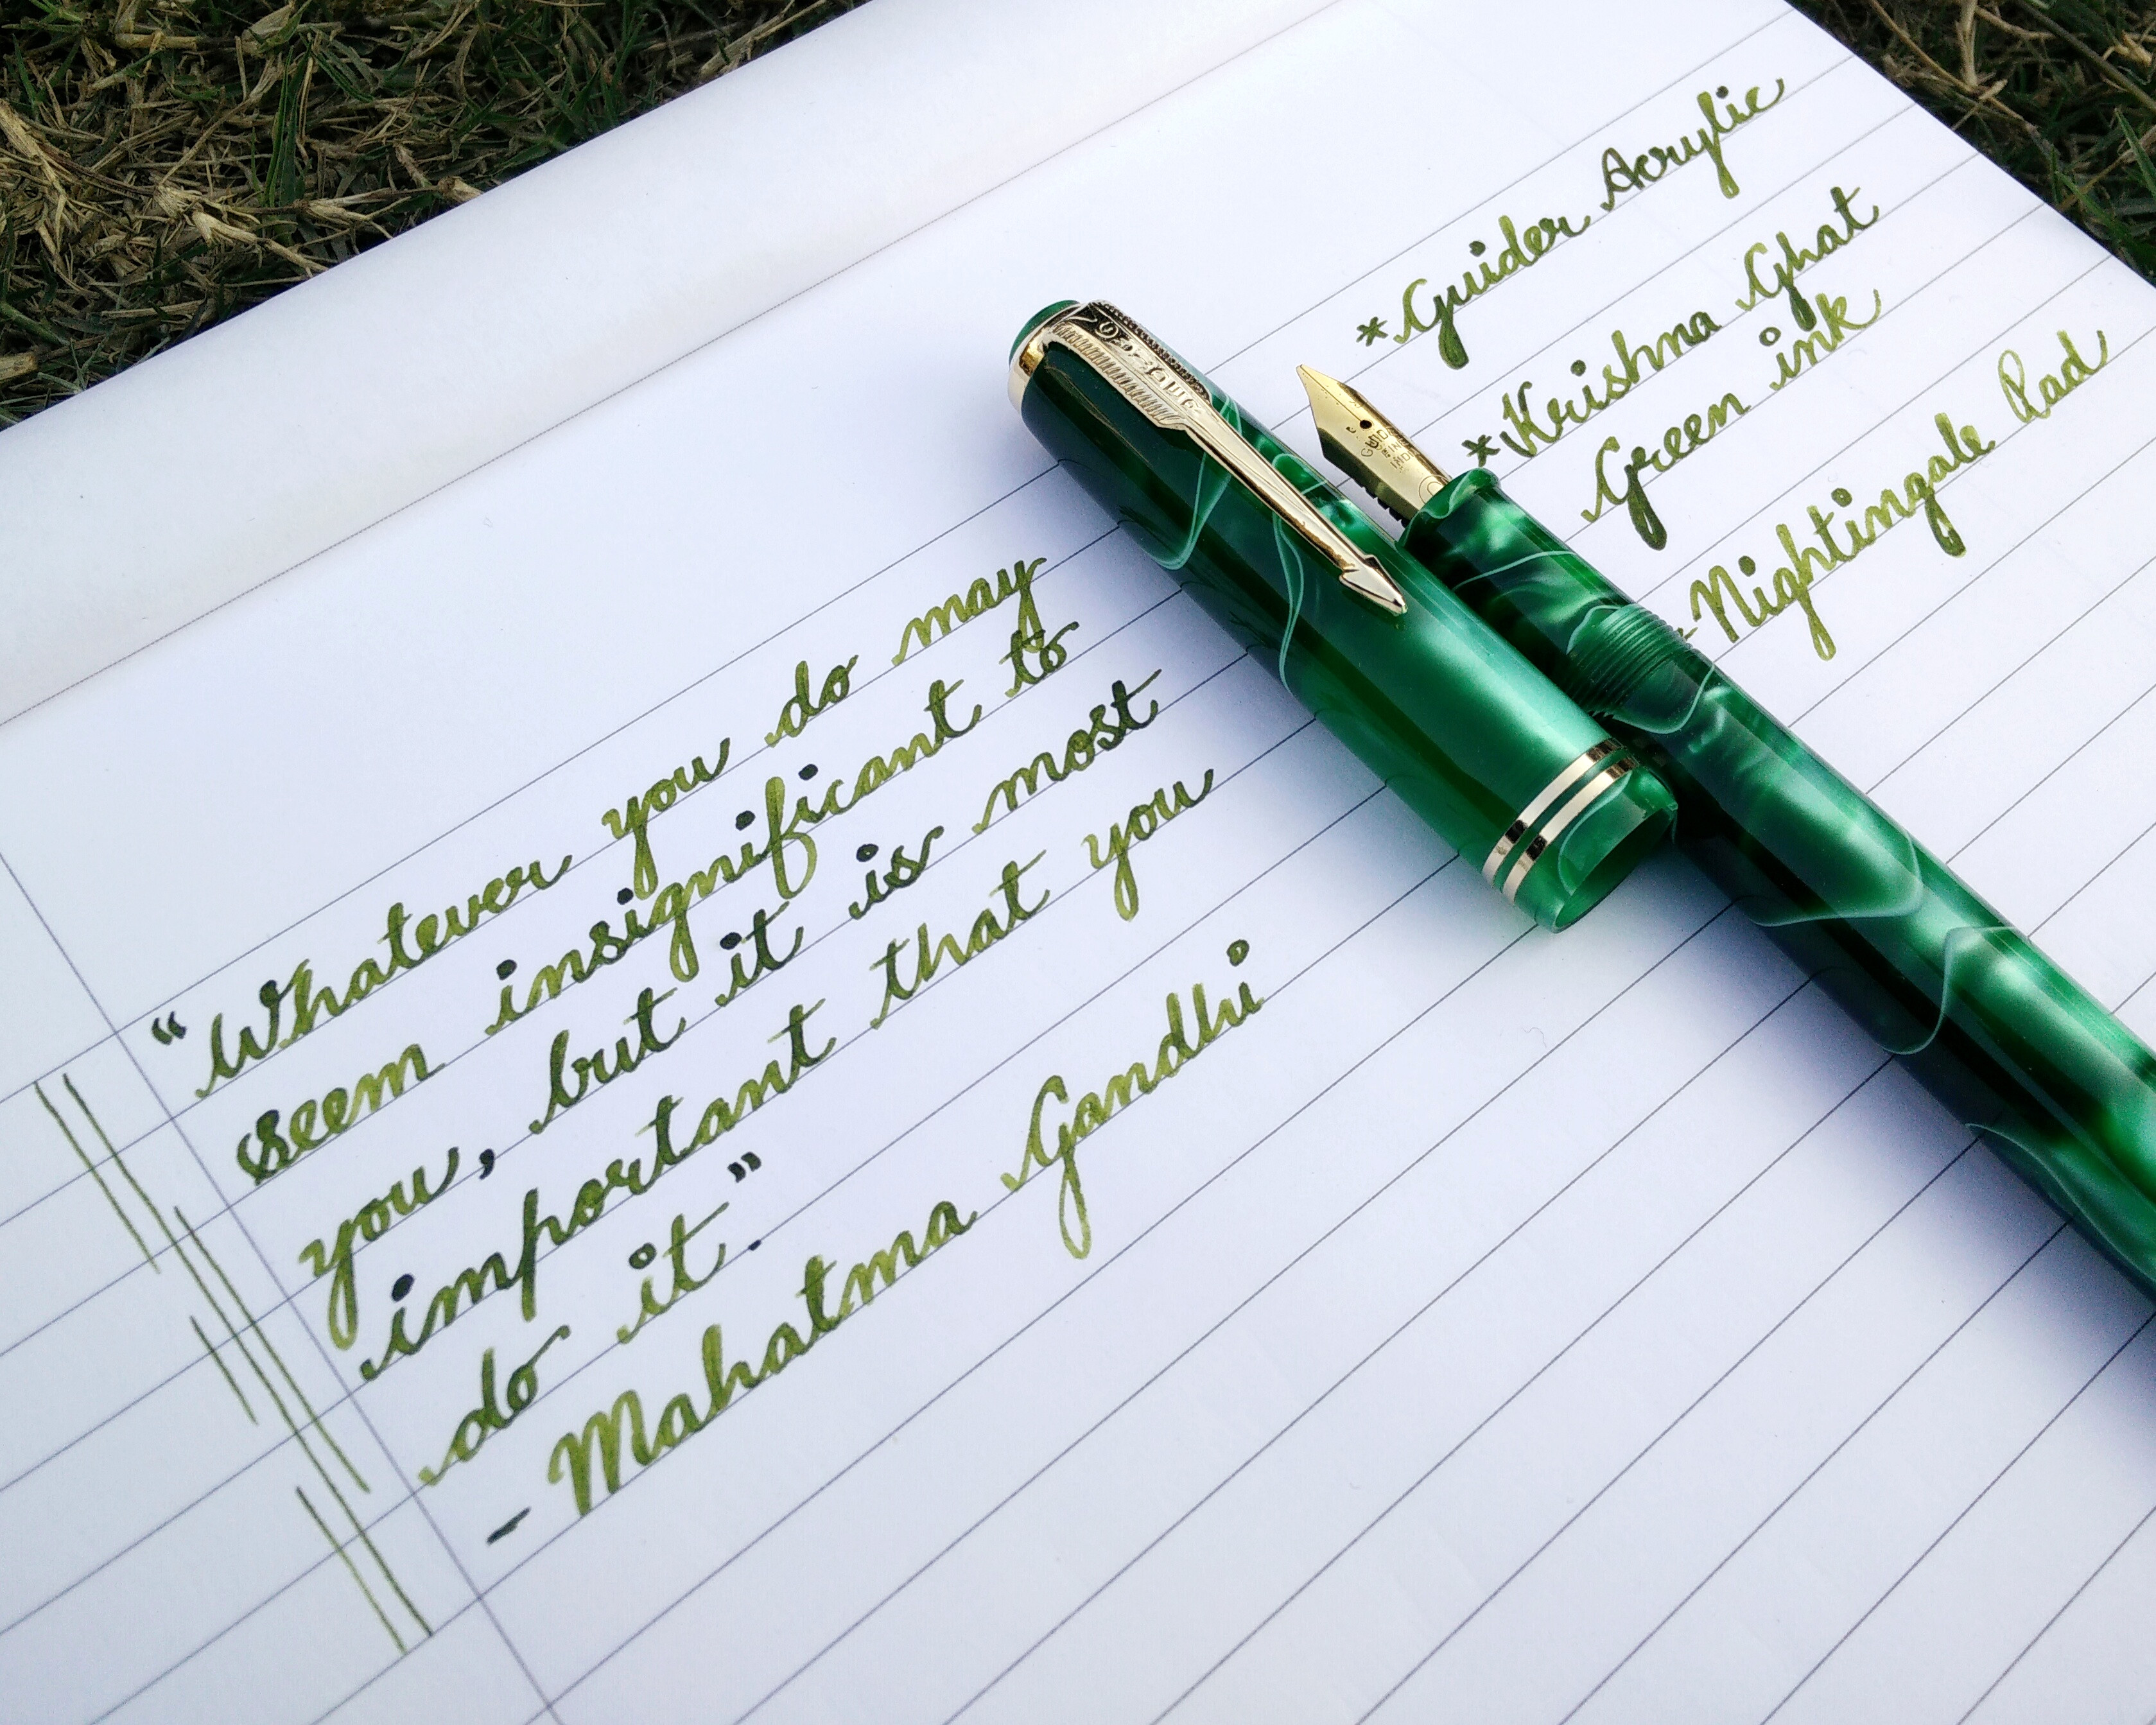 * Guider Acrylic
* Krishna Ghat
Green ink
* Nightingale Pad
"Whatever you do may
seem insignificant to
you, but it is most
important that you
do it".
- Mahatma Gandhi